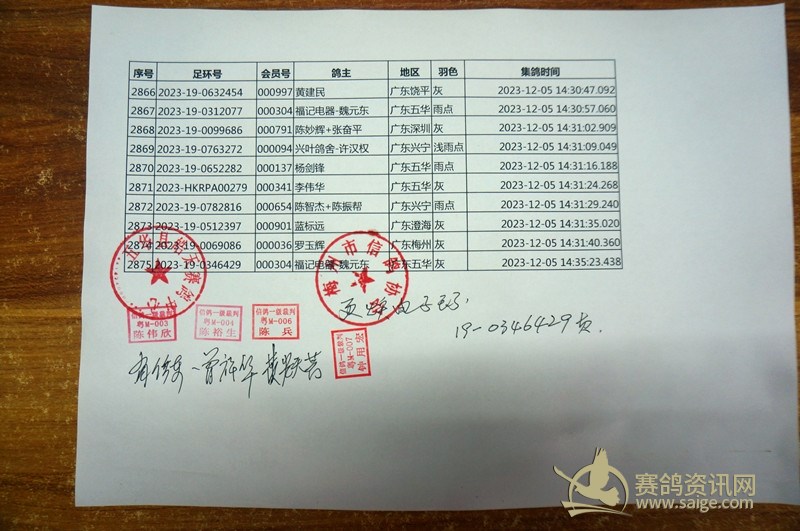 序号 足环号 会员号 鸽主 地区 羽色 集鸽时间
2866 2023-19-0632454 000997 黄建民 广东饶平 灰 2023-12-05 14:30:47.092
2867 2023-19-0312077 000304 福记电器-魏元东 广东五华 雨点 2023-12-05 14:30:57.060
2868 2023-19-0099686 000791 陈妙辉+张奋平 广东深圳 灰 2023-12-05 14:31:02.909
2869 2023-19-0763272 000094 兴叶鸽舍-许汉权 广东兴宁 浅雨点 2023-12-05 14:31:09.049
2870 2023-19-0652282 000137 杨剑锋 广东五华 雨点 2023-12-05 14:31:16.188
2871 2023-HKRPA00279 000341 李伟华 广东五华 灰 2023-12-05 14:31:24.268
2872 2023-19-0782816 000654 陈智杰+陈振帮 广东兴宁 雨点 2023-12-05 14:31:29.240
2873 2023-19-0512397 000901 蓝标远 广东澄海 灰 2023-12-05 14:31:35.020
2874 2023-19-0069086 000036 罗玉辉 广东梅州 灰 2023-12-05 14:31:40.360
2875 2023-19-0346429 000304 福记电器-魏元东 广东五华 灰 2023-12-05 14:35:23.438
梅州市信鸽协会
19-0346429
信鸽一级裁判
粤M-003
陈伟欣
信鸽一级裁判
粤M-004
陈裕生
信鸽一级裁判
粤M-006
陈兵
信鸽一级裁判
粤M-007
赛鸽资讯网
www.saige.com